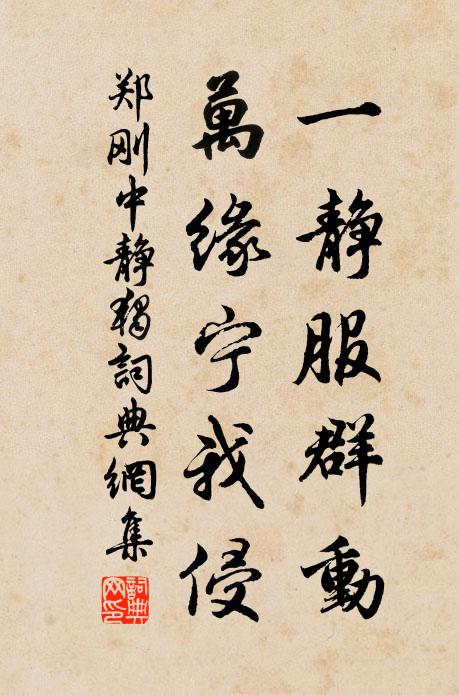 一静服群動
萬緣宁我侵
郑刚中静独詞典網集
詞典网印